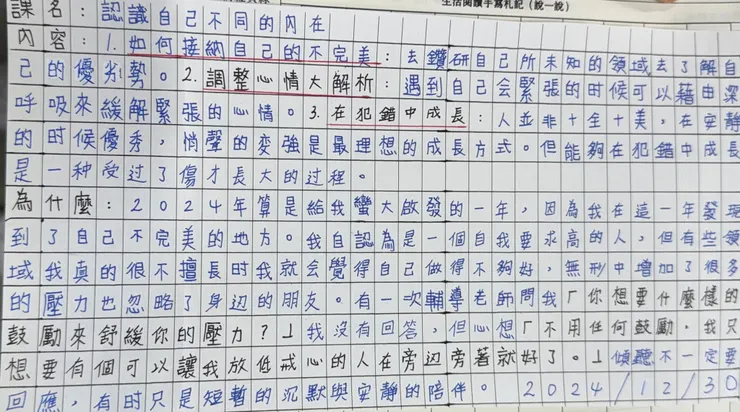 生活閱讀手寫札記（說一說）
課名：認識自己不同的內在
內容：1.如何接納自己的不完美：去鑽研自己所未知的領域去了解自
己的優劣勢。2.調整心情大解析：遇到自己会緊張的时候可以藉由深
呼吸來緩解緊張的心情。3.在犯錯中成長：人並非十全十美，在安静
的时候優秀，悄聲的变強是最理想的成長方式。但能夠在犯錯中成長
是一种受过了傷才長大的过程。
為什麼：2024年算是給我蠻大啟發的一年，因為我在這一年發現
到了自己不完美的地方。我自認為是一個自我要求高的人，但有些領
域我真的很不擅長时我就会覺得自己做得不夠好，無形中增加了很多
的壓力也忽略了身边的朋友。有一次輔導老師問我「你想要什麼樣的
鼓勵來舒緩你的壓力？」我沒有回答，但心想「不用任何鼓勵，我只
想要有個可以讓我放低戒心的人在旁边旁著就好了。」傾聽不一定要
回應，有时只是短暫的沉默與安静的陪伴。 2024/12/30